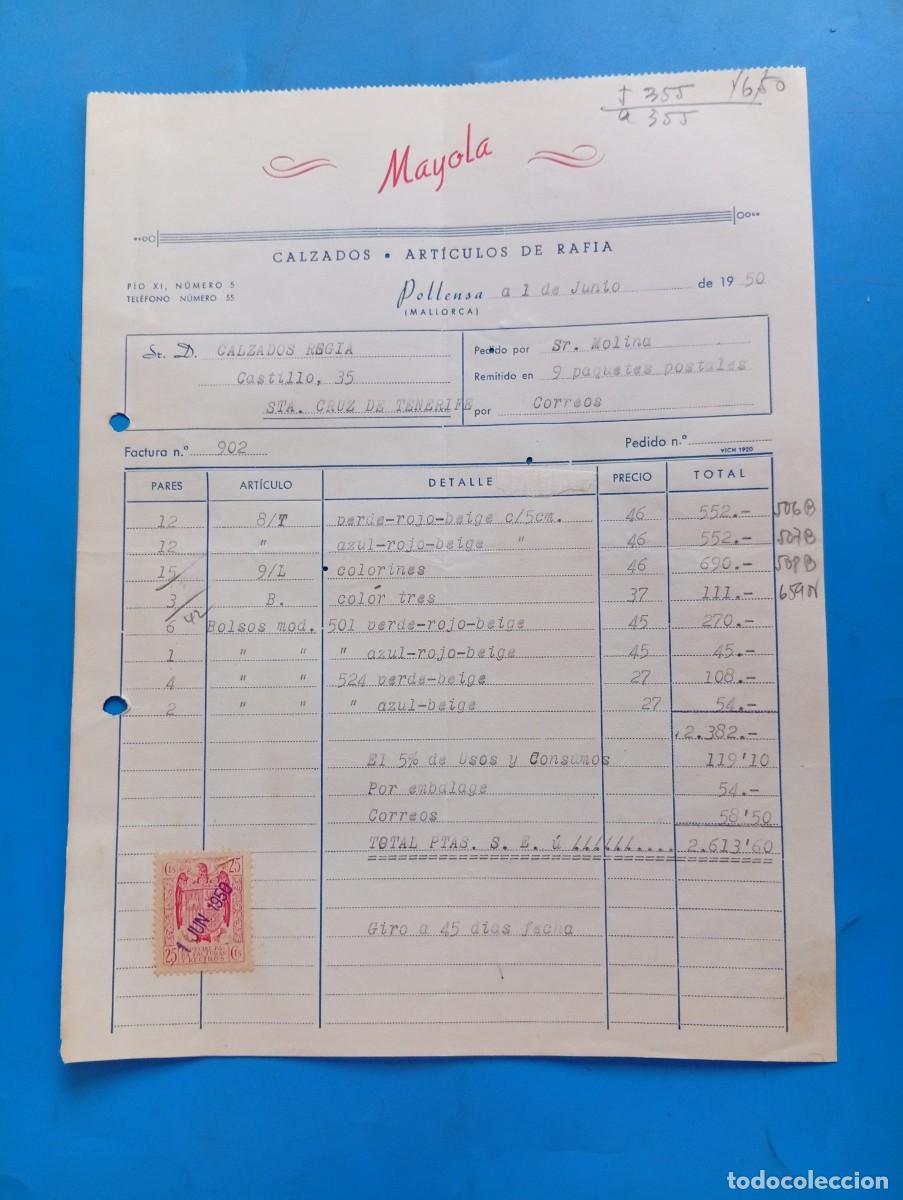 + 355 1650
a 355
Mayola
CALZADOS • ARTÍCULOS DE RAFIA
PÍO XI, NÚMERO 5
TELÉFONO NÚMERO 55
Pollensa a 1 de Junio de 1950
(MALLORCA)
Sr. D. CALZADOS REGIA
Castillo, 35
STA. CRUZ DE TENERIFE
Pedido por Sr. Molina
Remitido en 9 paquetes postales
por Correos
Factura n.º 902
Pedido n.º
VICH 1920
PARES ARTÍCULO DETALLE PRECIO TOTAL
12 8/T verde-rojo-beige c/5cm. 46 552.- 506B
12 " azul-rojo-beige " 46 552.- 507B
15 9/L colorines 46 690.- 508B
3 B. color tres 37 111.- 659N
42
6 Bolsos mod. 501 verde-rojo-beige 45 270.-
1 " " " azul-rojo-beige 45 45.-
4 " " 524 verde-beige 27 108.-
2 " " " azul-beige 27 54.-
2.382.-
El 5% de Usos y Consumos 119'10
Por embalage 54.-
Correos 58'50
TOTAL PTAS. S. E. ú .... 2.613'60
Giro a 45 dias fecha
Cts 25
1 JUN 1950
ESPECIAL PA-
RA FACTURAS
Y RECIBOS
25 Cts
todocoleccion